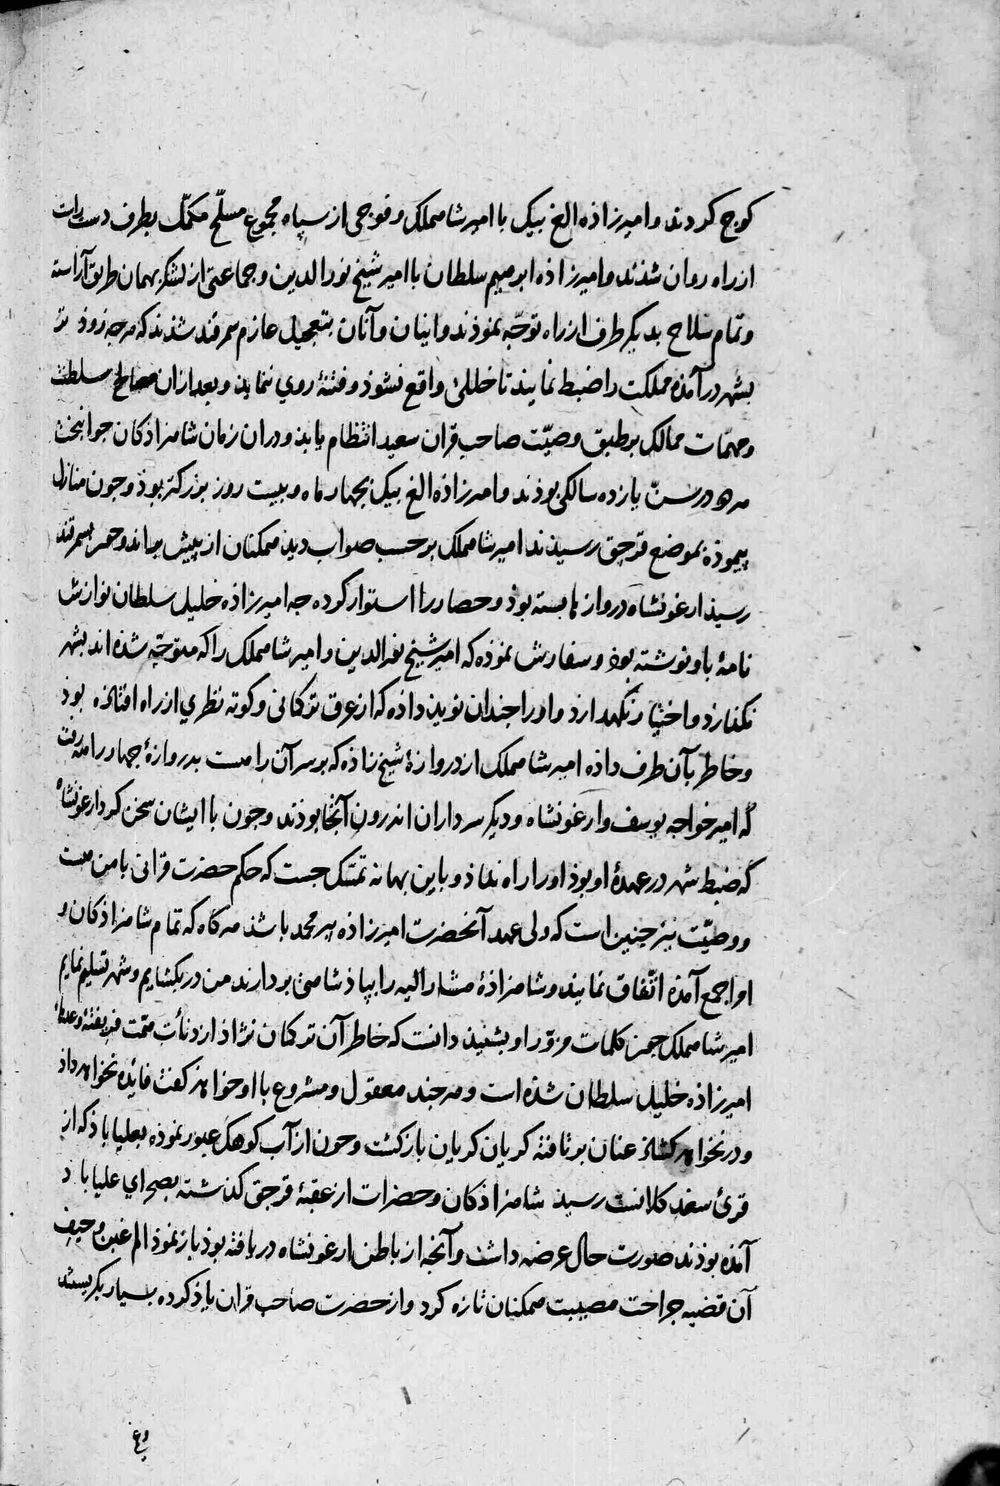 کوچ کردند و امیرزاده الغ بیک با امیر شاهملک و فوجی از سپاه مجموع مسلّح مکمّل بطرف دست راست
از راه روان شدند و امیرزاده ابرهیم سلطان با امیر شیخ نورالدین و جماعتی از لشکر بهمان طریق آراسته
و تمام سلاح بدیکر طرف از راه توجّه نمودند و اینان و آنان بتعجیل عازم سمرقند شدند که هرچه زودتر
بشهر درآمده مملکت را ضبط نمایند تا خللی واقع نشوذ و فتنهٔ روی ننماید و بعد ازان مصالح سلطنت
و مهمّات ممالک بر طبق وصیّت صاحب قران سعید انتظام یابد و دران زمان شاهزاذکان جوانبخت
هر دو در سنّ یازده سالکی بوذند و امیرزاذه الغ بیک بچهار ماه و بیست روز بزرکتر بوذ و چون منازل
پیموذه بموضع قرجق رسیذند امیر شاهملک بر حسب صواب دید همکنان از پیش براند و چون بسمرقند
رسیذ ارغونشاه دروازها بسته بوذ و حصار را استوار کرده چه امیرزاذه خلیل سلطان نوازش
نامهٔ باو نوشته بوذ و سفارش نموذه که امیر شیخ نورالدین و امیر شاهملک را که متوجّه شده اند بشهر
نکذارد و اختیار نکهدارد و او را چندان نوید داذه که از عرق ترکانی و کوته نظری از راه افتاذه بوذ
و خاطر بآن طرف داذه امیر شاهملک از دروازهٔ شیخ زاذه که بر سر آن راهست بدروازهٔ چهارراهه رفت
که امیر خواجه یوسف و ارغونشاه و دیکر سرداران اندرون آنجا بوذند و چون با ایشان سخن کرد ارغونشاه
که ضبط شهر در عهدهٔ او بوذ او را راه نداذ و باین بهانه تمسّک جست که حکم حضرت قرانی با من هست
و وصیّت نیز چنین است که ولی عهد آنحضرت امیرزاذه پیر محمد باشذ هرکاه که تمام شاهزاذکان و
امرا جمع آمده اتّفاق نمایند و شاهزاذهٔ مشار الیه را بپاذشاهی بردارند من در بکشایم و شهر تسلیم نمایم
امیر شاهملک چون کلمات مزوّر او بشنیذ دانست که خاطر آن ترکان نژاذ از دنأت همّت فریفتهٔ وعدهاء
امیرزاذه خلیل سلطان شذه است و هرچند معقول و مشروع با او خواهذ کفت فایده نخواهد داذ
و در نخواهد کشاذ عنان برتافته کریان کریان بازکشت و چون از آب کوهک عبور نموذه بعلیاباذ که از
قرئ سغد کلانست رسیذ شاهزاذکان و حضرات از عقبهٔ قرجق کذشته بصحرای علیاباذ
آمذه بوذند صورت حال عرضه داشت و آنچه از باطن ارغونشاه دریافته بوذ بازنموذ الم غبن و حیف
آن قضیه جراحت مصیبت همکنان تازه کرد و از حضرت صاحب قران یاذ کرده بسیار بکریستند